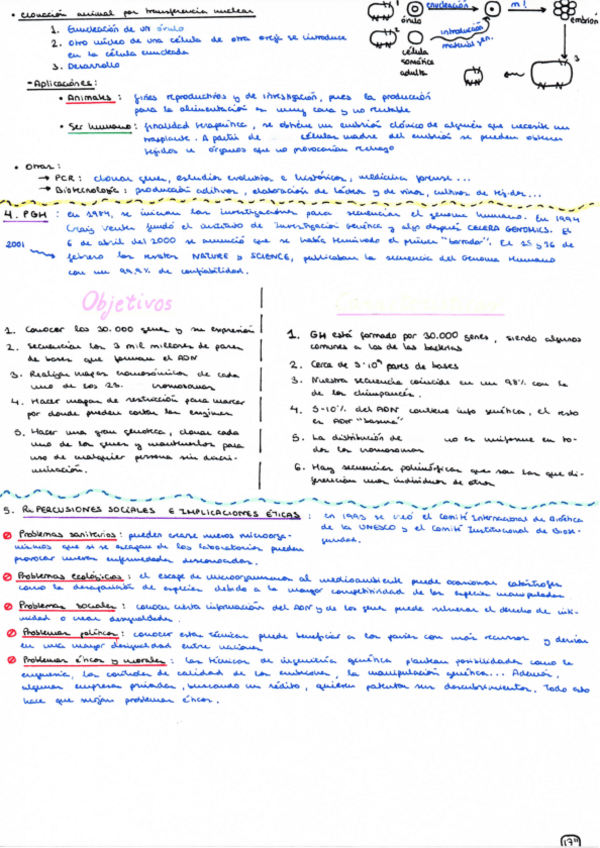 • Clonación animal por transferencia nuclear
1. Enucleación de un óvulo
2. Otro núcleo de una célula de otra oveja se introduce
en la célula enucleada
3. Desarrollo
óvulo
enucleación
introducción
material gen.
célula
somática
adulta
embrión
- Aplicaciones:
• Animales: fines reproductivos y de investigación, pues la producción
para la alimentación es muy cara y no rentable
• Ser humano: finalidad terapéutica, se obtiene un embrión clónico de alguien que necesite un
trasplante. A partir de células madre del embrión se pueden obtener
tejidos u órganos que no provocarían rechazo
• Otras:
→ PCR: clonar genes, estudios evolutivos e históricos, medicina forense...
→ Biotecnología: producción aditivos, elaboración de lácteos y de vinos, cultivos de tejidos...
4. PGH: en 1984, se inician las investigaciones para secuenciar el genoma humano. En 1994
Craig Venter fundó el instituto de Investigación Genética y algo después CELERA GENOMICS. El
6 de abril del 2000 se anunció que se había terminado el primer "borrador". El 15 y 16 de
2001
febrero las revistas NATURE y SCIENCE, publicaban la secuencia del Genoma Humano
con un 99,9% de confiabilidad.
Objetivos
1. Conocer los 30.000 genes y su expresión
2. Secuenciar los 3 mil millones de pares
de bases que forman el ADN
3. Realizar mapas cromosómicos de cada
uno de los 23 cromosomas
4. Hacer mapas de restricción para marcar
por donde pueden cortar las enzimas
5. Hacer una gran genoteca, clonar cada
uno de los genes y mantenerlos para
uso de cualquier persona sin discri-
minación.
1. GH está formado por 30.000 genes, siendo algunos
comunes a los de las bacterias
2. Cerca de 3·10⁹ pares de bases
3. Nuestra secuencia coincide en un 98% con la
de los chimpancés.
4. 5-10% del ADN contiene info genética, el resto
es ADN "basura"
5. La distribución de no es uniforme en to-
dos los cromosomas
6. Hay secuencias polimórficas que son las que di-
ferencian unos individuos de otros
5. REPERCUSIONES SOCIALES E IMPLICACIONES ÉTICAS: en 1993 se creó el Comité Internacional de Bioética
de la UNESCO y el Comité Institucional de Biose-
guridad.
Problemas sanitarios: pueden crearse nuevos microorga-
nismos que si se escapan de los laboratorios pueden
provocar nuevas enfermedades desconocidas.
Problemas ecológicos: el escape de microorganismos al medioambiente puede ocasionar catástrofes
como la desaparición de especies debido a la mayor competitividad de las especies manipuladas
Problemas sociales: conocer cierta información del ADN y de los genes puede vulnerar el derecho de inti-
midad o crear desigualdades.
Problemas políticos: conocer estas técnicas puede beneficiar a los países con más recursos y derivar
en una mayor desigualdad entre naciones
Problemas éticos y morales: las técnicas de ingeniería genética plantean posibilidades como la
eugenesia, los controles de calidad de los embriones, la manipulación genética... Además,
algunas empresas privadas, buscando un rédito, quieren patentar sus descubrimientos. Todo esto
hace que surjan problemas éticos.